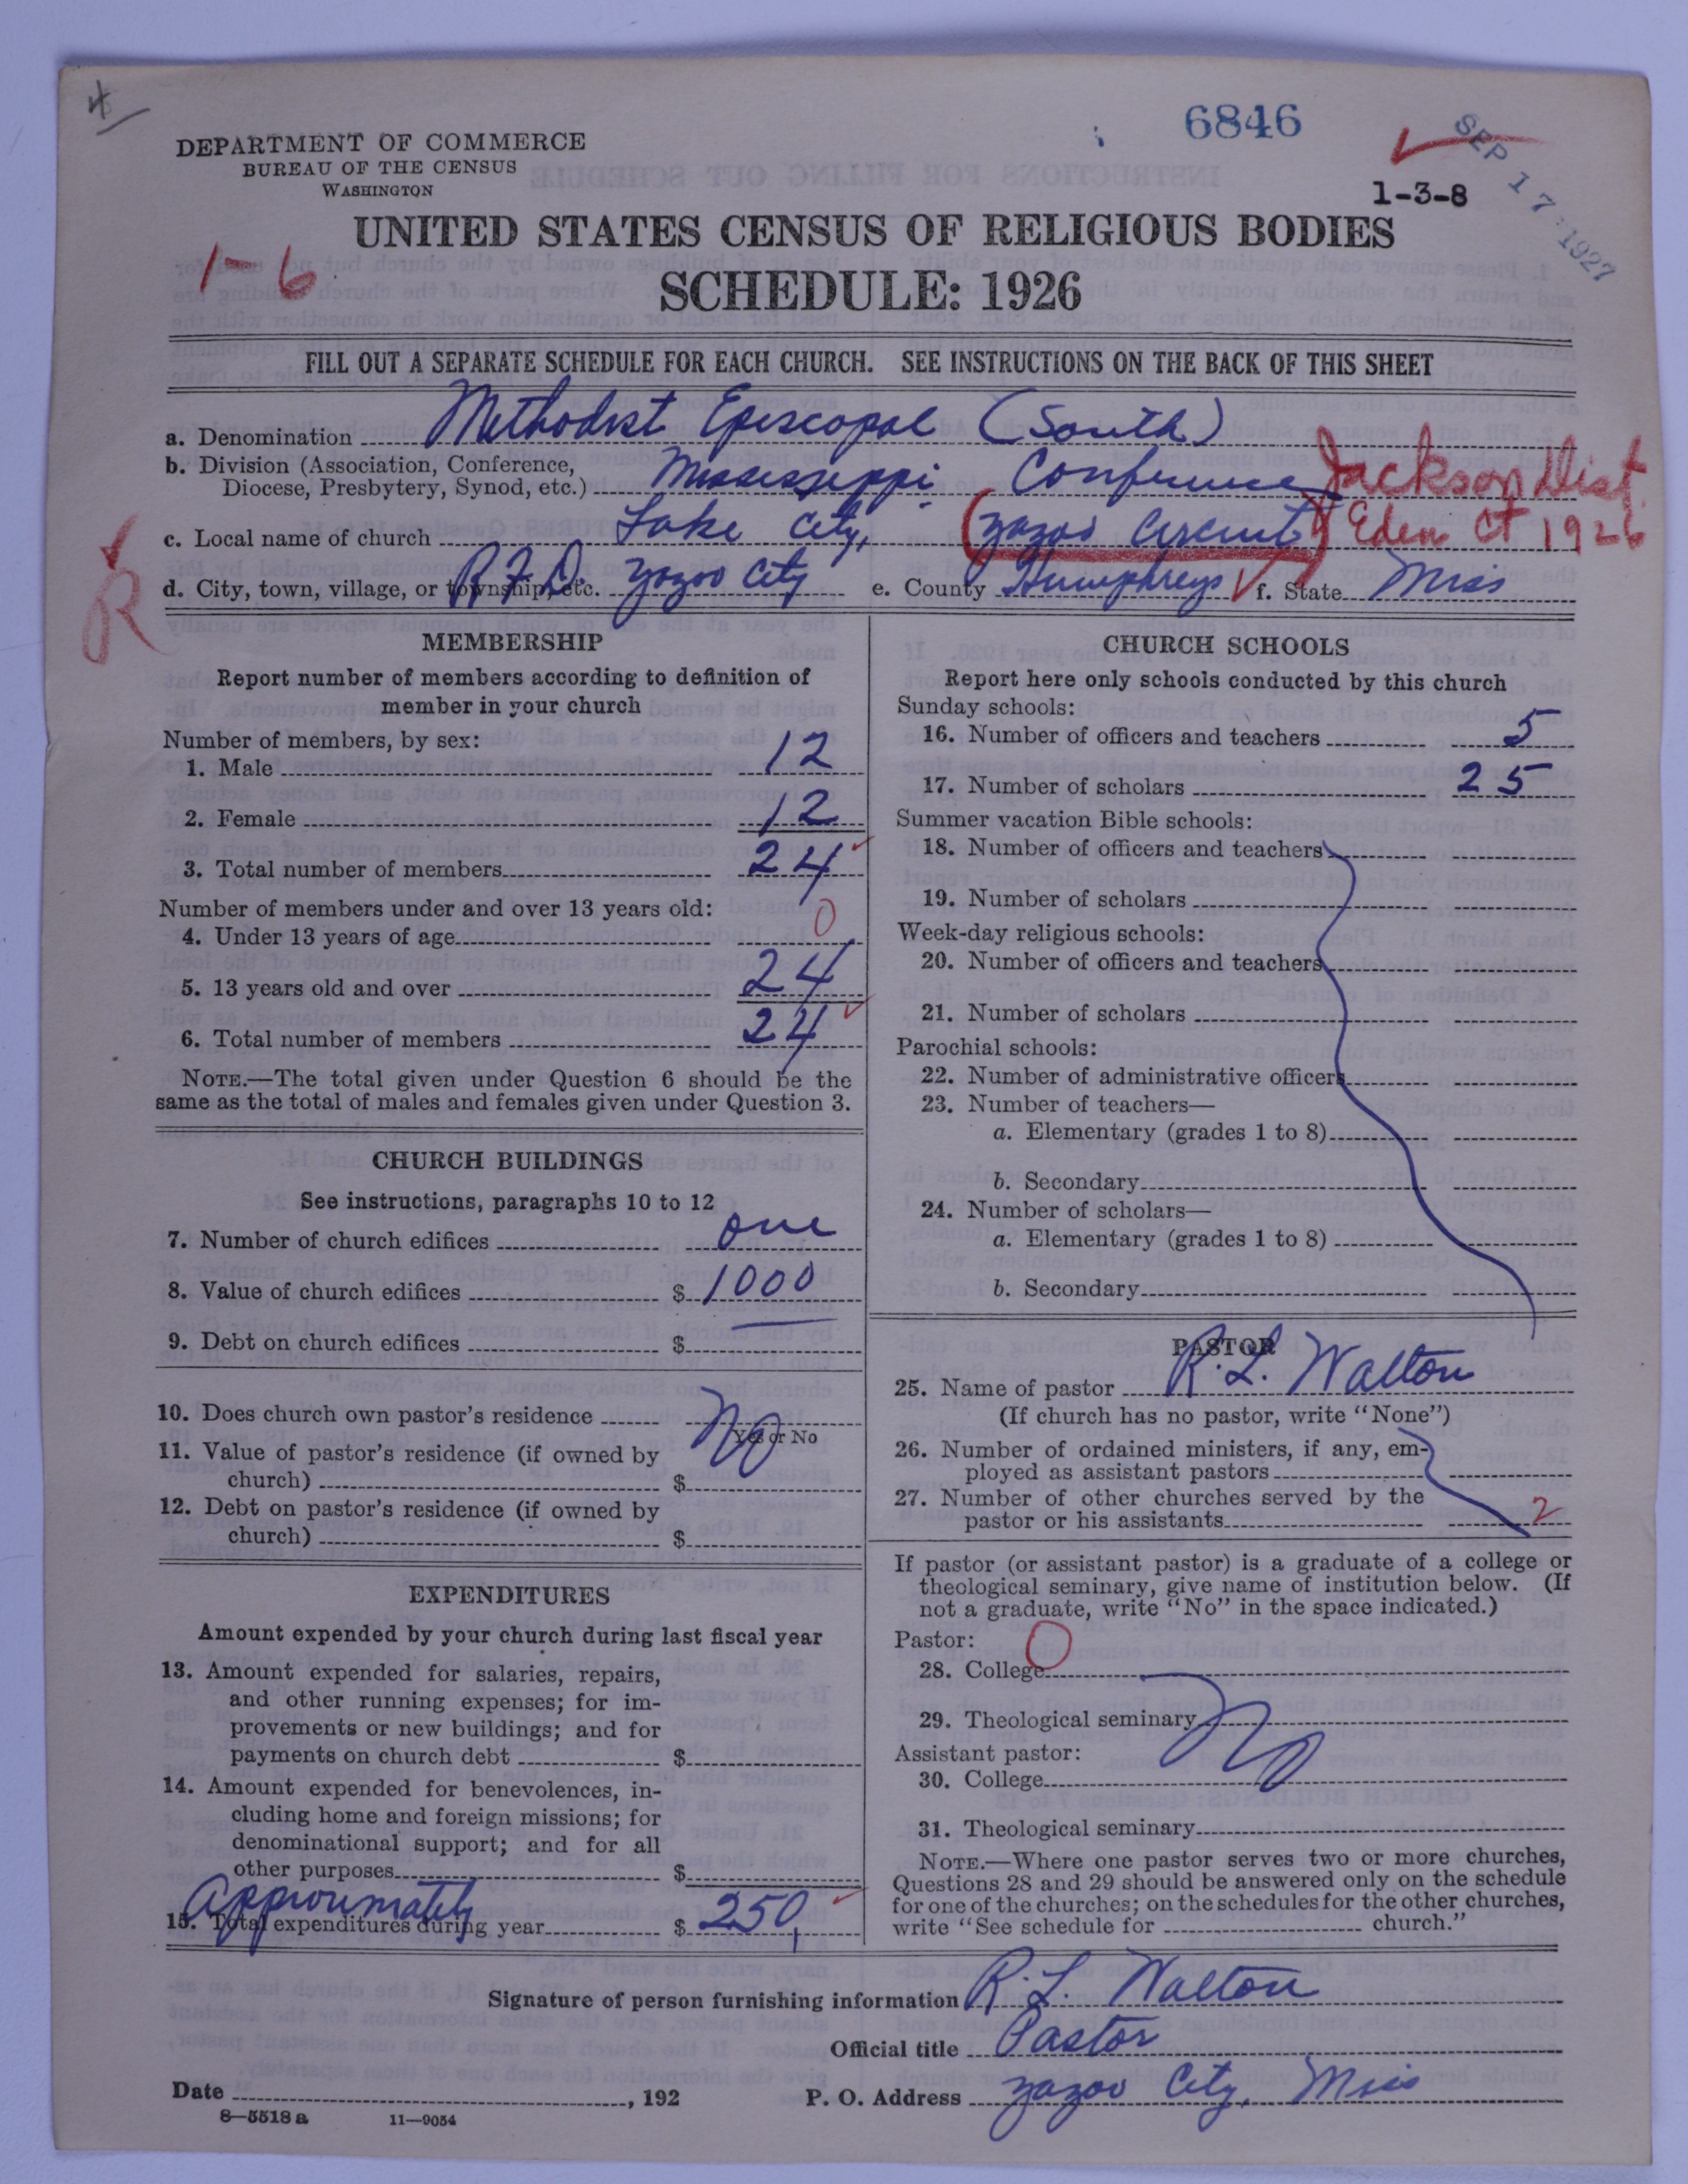 4
6846
SEP 17 1927
DEPARTMENT OF COMMERCE
BUREAU OF THE CENSUS
WASHINGTON
1-3-8
UNITED STATES CENSUS OF RELIGIOUS BODIES
1-6
SCHEDULE: 1926
FILL OUT A SEPARATE SCHEDULE FOR EACH CHURCH. SEE INSTRUCTIONS ON THE BACK OF THIS SHEET
a. Denomination Methodist Episcopal (South)
b. Division (Association, Conference,
Diocese, Presbytery, Synod, etc.) Mississippi Conference Jackson Dist.
c. Local name of church Lake City, (Yazoo Circuit) Eden Ct 1926
R
d. City, town, village, or township, etc. R.F.D. Yazoo City e. County Humphreys f. State Miss
MEMBERSHIP
Report number of members according to definition of
member in your church
Number of members, by sex:
1. Male 12
2. Female 12
3. Total number of members 24
Number of members under and over 13 years old:
4. Under 13 years of age 0
5. 13 years old and over 24
6. Total number of members 24
NOTE.—The total given under Question 6 should be the
same as the total of males and females given under Question 3.
CHURCH BUILDINGS
See instructions, paragraphs 10 to 12
7. Number of church edifices one
8. Value of church edifices $ 1000
9. Debt on church edifices $
10. Does church own pastor's residence No
Yes or No
11. Value of pastor's residence (if owned by
church) $
12. Debt on pastor's residence (if owned by
church) $
EXPENDITURES
Amount expended by your church during last fiscal year
13. Amount expended for salaries, repairs,
and other running expenses; for im-
provements or new buildings; and for
payments on church debt $
14. Amount expended for benevolences, in-
cluding home and foreign missions; for
denominational support; and for all
other purposes $
Approximately
15. Total expenditures during year $ 250
CHURCH SCHOOLS
Report here only schools conducted by this church
Sunday schools:
16. Number of officers and teachers 5
17. Number of scholars 25
Summer vacation Bible schools:
18. Number of officers and teachers
19. Number of scholars
Week-day religious schools:
20. Number of officers and teachers
21. Number of scholars
Parochial schools:
22. Number of administrative officers
23. Number of teachers—
a. Elementary (grades 1 to 8)
b. Secondary
24. Number of scholars—
a. Elementary (grades 1 to 8)
b. Secondary
PASTOR
25. Name of pastor R. L. Walton
(If church has no pastor, write "None")
26. Number of ordained ministers, if any, em-
ployed as assistant pastors
27. Number of other churches served by the
pastor or his assistants 2
If pastor (or assistant pastor) is a graduate of a college or
theological seminary, give name of institution below. (If
not a graduate, write "No" in the space indicated.)
Pastor: 0
28. College
29. Theological seminary No
Assistant pastor:
30. College
31. Theological seminary
NOTE.—Where one pastor serves two or more churches,
Questions 28 and 29 should be answered only on the schedule
for one of the churches; on the schedules for the other churches,
write "See schedule for church."
Signature of person furnishing information R. L. Walton
Official title Pastor
Date , 192 P. O. Address Yazoo City, Miss
8—5518 a 11—9054